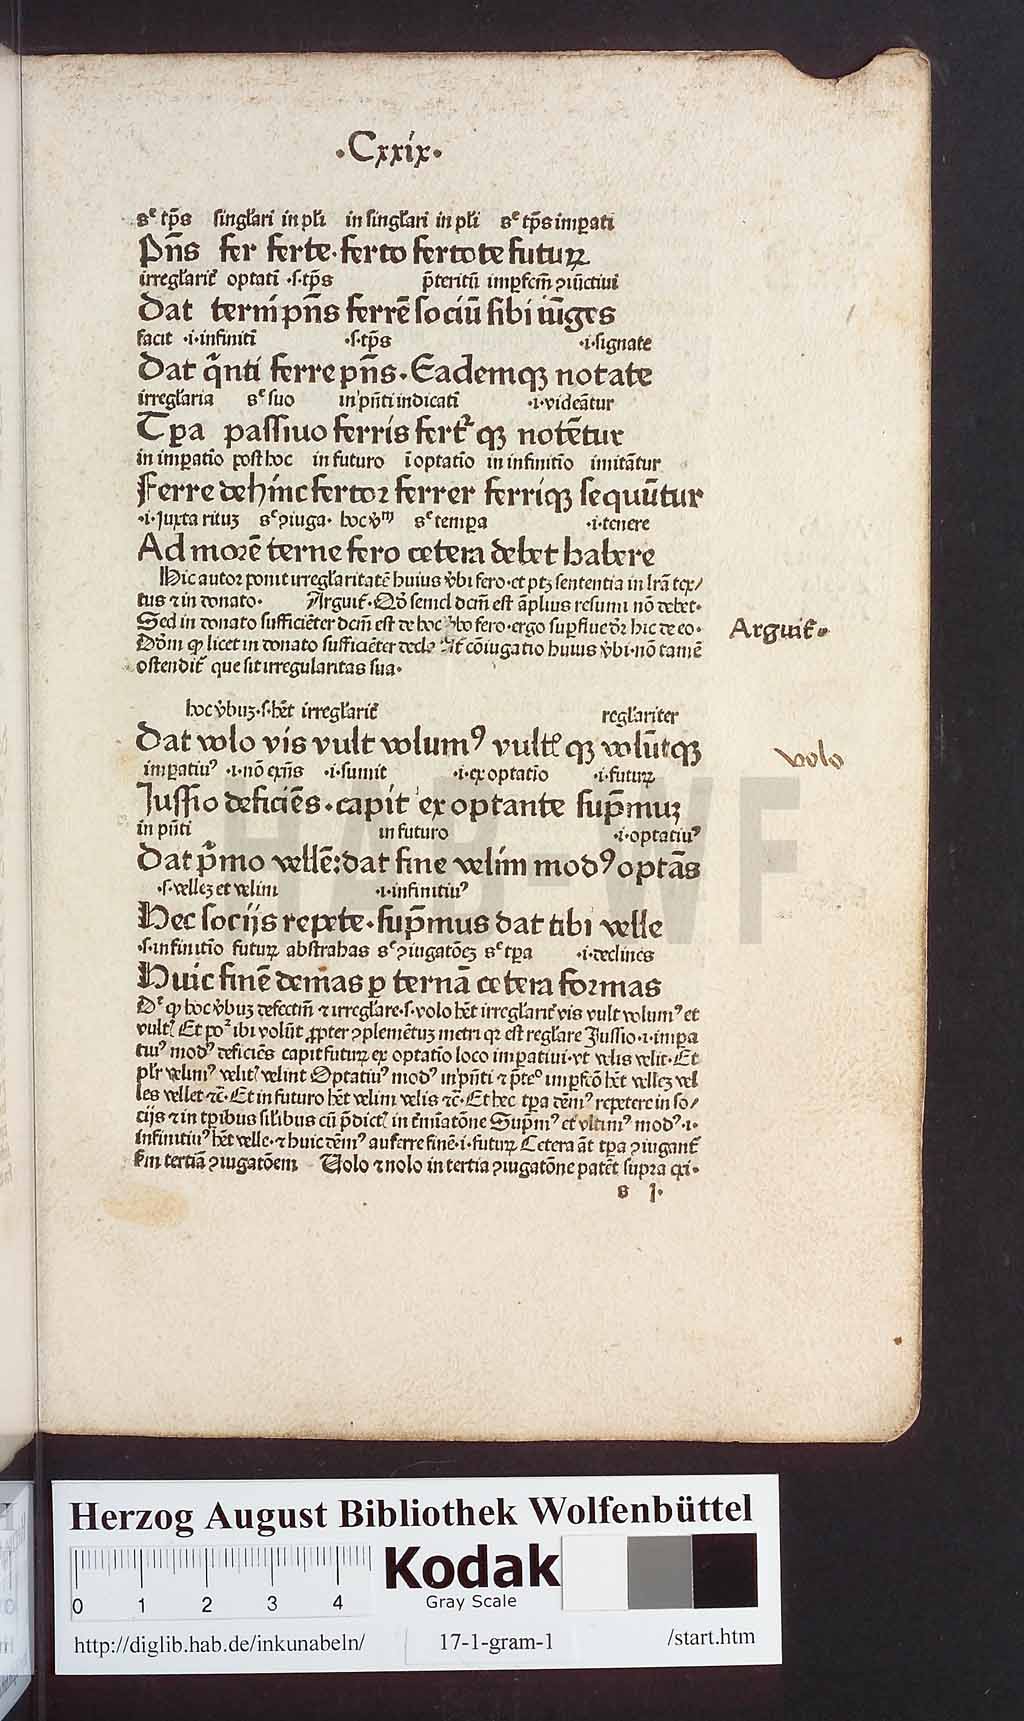 ·Cxxix·
sᵉ tp̄s singl'ari in pl'i in singl'ari in pl'i sᵉ tp̄s imꝑati
Pn̄s fer ferte·ferto fertote futuꝝ
irregl'arit' optati ·s·tp̄s p̄teritū imꝑfcm̄ ꝯiūctiui
Dat tern̄i pn̄s ferrē sociū sibi iūges
facit ·i·infiniti ·s·tp̄s ·i·signate
Dat q̄nti ferre pn̄s·Eademqꝫ notate
irregl'aria sᵉ suo in pn̄ti indicati ·i·videātur
Tꝑa passiuo ferris fert' qꝫ notētur
in imꝑatio post hoc in futuro ī optatio in infinitio imitātur
Ferre dehinc fertoꝛ ferrer ferriqꝫ sequūtur
·i·Juxta rituꝫ sᵉ ꝯiuga· hoc v̄m sᵉ tempa ·i·tenere
Ad moꝛē terne fero cetera debet habere
Hic autor ponit irregl'aritatē huius v̄bi fero·et ptꝫ sententia in lr̄a tex/
tus ⁊ in donato· Arguit'·Qd' semel dcm̄ est āplius resumi nō debet·
Sed in donato sufficiēter dcm̄ est de hoc v̄bo fero·ergo suꝑfiue dr̄ hic de eo·
Dd'm ꝙ licet in donato sufficiēter decla cōiugatio huius v̄bi·nō tamē
ostendit' que sit irregularitas sua·
Arguit'·
hoc v̄buꝫ·s·hēt irregl'arit' regl'ariter
Dat volo vis vult volumꝰ vult' qꝫ volūtqꝫ
volo
imꝑatiuꝰ ·i·nō exn̄s ·i·sumit ·i·ex optatio ·i·futuꝝ
Jussio deficiēs·capit ex optante sup̄muꝫ
in pn̄ti in futuro ·i·optatiuꝰ
Dat p̄mo vellē:dat fine velim modꝰ optās
·s·velleꝫ et velim ·i·infinitiuꝰ
Hec socijs repete·sup̄mus dat tibi velle
·s·infinitio futuꝝ abstrahas sᵉ ꝯiugatōeꝫ sᵉ tꝑa ·i·declines
Huic finē demas ꝑ ternā cetera formas
Dᵉ ꝙ hoc v̄buꝫ defectiū ⁊ irregl'are·s·volo hēt irregl'arit' vis vult volumꝰ et
vult' Et poᶻ ibi volūt ꝓpter ꝯplementuꝫ metri qꝛ est regl'are Jussio·i·imꝑa
tiuꝰ modꝰ deficiēs capit futuꝝ ex optatio loco imꝑatiui·vt velis velit·Et
pl'r velimꝰ velit' velint Optatiuꝰ modꝰ in pn̄ti ⁊ p̄teᵒ imꝑfcō hēt velleꝫ vel
les vellet ⁊c̄·Et in futuro hēt velim velis ⁊c̄·Et hec tꝑa dēmꝰ repetere in so/
cijs ⁊ in tꝑibus sil'ibus cū p̄dict' in t'miatōne Sup̄mꝰ et vltimꝰ modꝰ·i·
infinitiuꝰ hēt velle·⁊ huic dēmꝰ auferre finē·i·futuꝝ Cetera āt tꝑa ꝯiugant'
scd'm tertiā ꝯiugatōem Uolo ⁊ nolo in tertia ꝯiugatōne patēt supra cxi·
s j·
HAB-WF
Herzog August Bibliothek Wolfenbüttel
0 1 2 3 4
Kodak
Gray Scale
http://diglib.hab.de/inkunabeln/ 17-1-gram-1 /start.htm